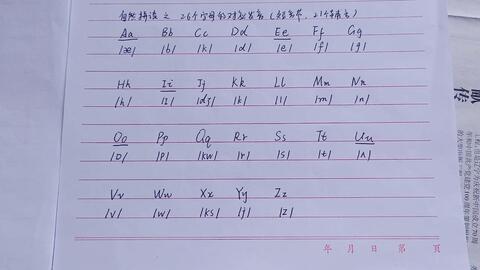 自然拼读之 26个字母的对应发音(短元音,21个辅音)
Aa Bb Cc Dd Ee Ff Gg
/æ/ /b/ /k/ /d/ /e/ /f/ /g/
Hh Ii Jj Kk Ll Mm Nn
/h/ /ɪ/ /dʒ/ /k/ /l/ /m/ /n/
Oo Pp Qq Rr Ss Tt Uu
/ɒ/ /p/ /kw/ /r/ /s/ /t/ /ʌ/
Vv Ww Xx Yy Zz
/v/ /w/ /ks/ /j/ /z/
年 月 日 第 頁
传